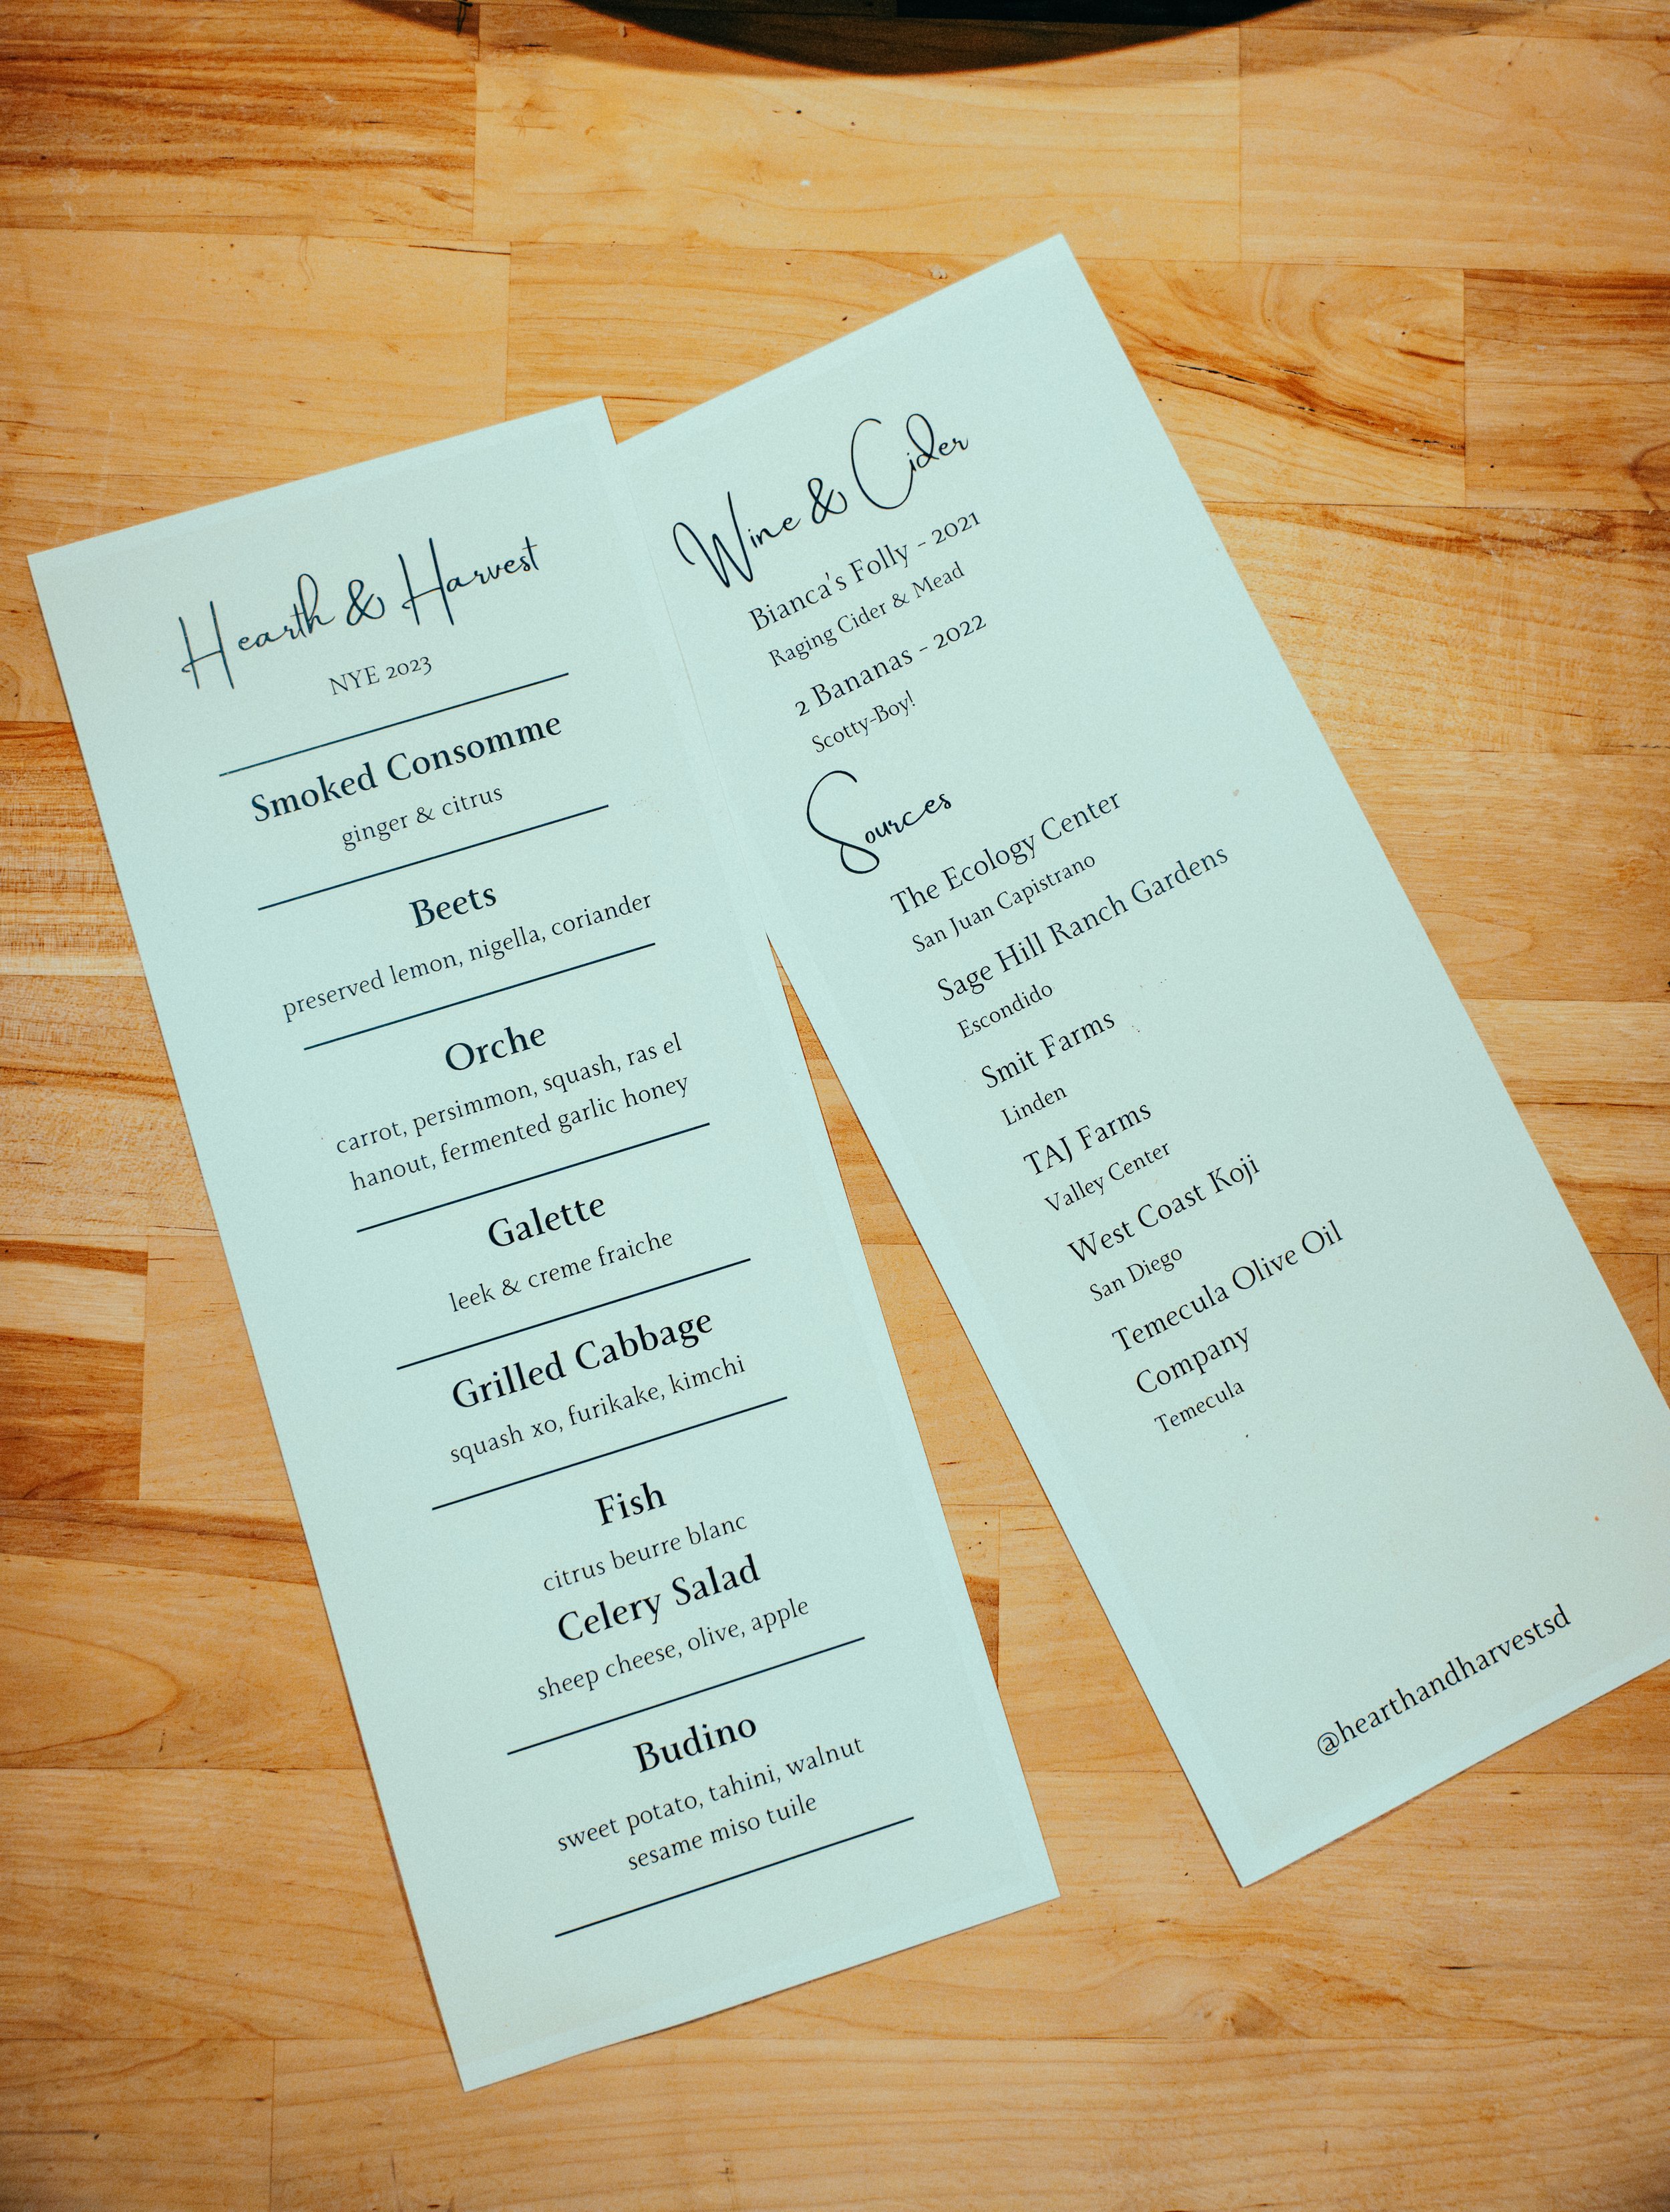 Hearth & Harvest
NYE 2023
Smoked Consomme
ginger & citrus
Beets
preserved lemon, nigella, coriander
Orche
carrot, persimmon, squash, ras el
hanout, fermented garlic honey
Galette
leek & creme fraiche
Grilled Cabbage
squash xo, furikake, kimchi
Fish
citrus beurre blanc
Celery Salad
sheep cheese, olive, apple
Budino
sweet potato, tahini, walnut
sesame miso tuile
Wine & Cider
Bianca's Folly - 2021
Raging Cider & Mead
2 Bananas - 2022
Scotty-Boy!
Sources
The Ecology Center
San Juan Capistrano
Sage Hill Ranch Gardens
Escondido
Smit Farms
Linden
TAJ Farms
Valley Center
West Coast Koji
San Diego
Temecula Olive Oil
Company
Temecula
@hearthandharvestsd